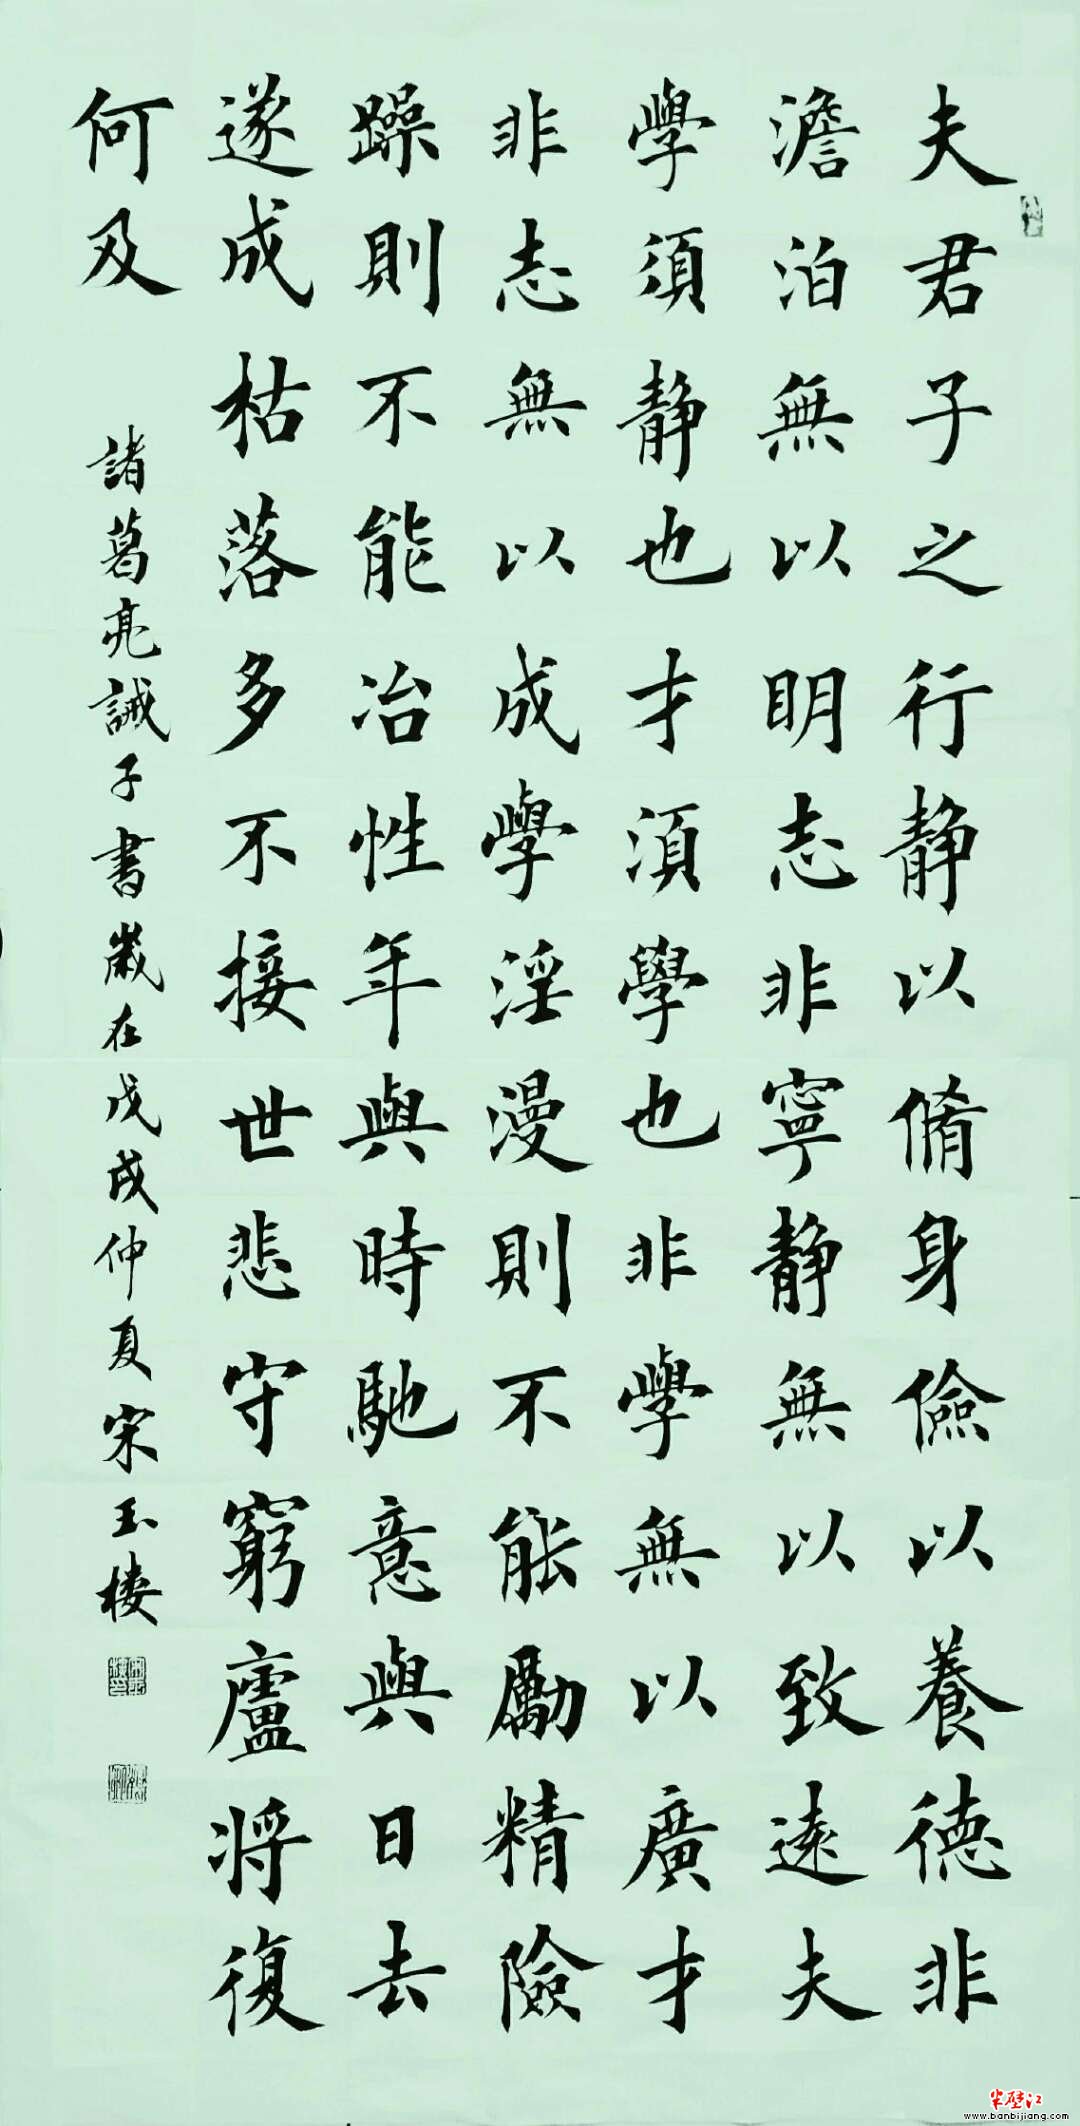 夫君子之行静以脩身儉以養德非
澹泊無以明志非寧静無以致遠夫
學須静也才須學也非學無以廣才
非志無以成學淫漫則不能勵精險
躁則不能冶性年與時馳意與日去
遂成枯落多不接世悲守窮廬将復
何及
諸葛亮誡子書歲在戊戌仲夏宋玉楼
半壁江
www.banbijiang.com